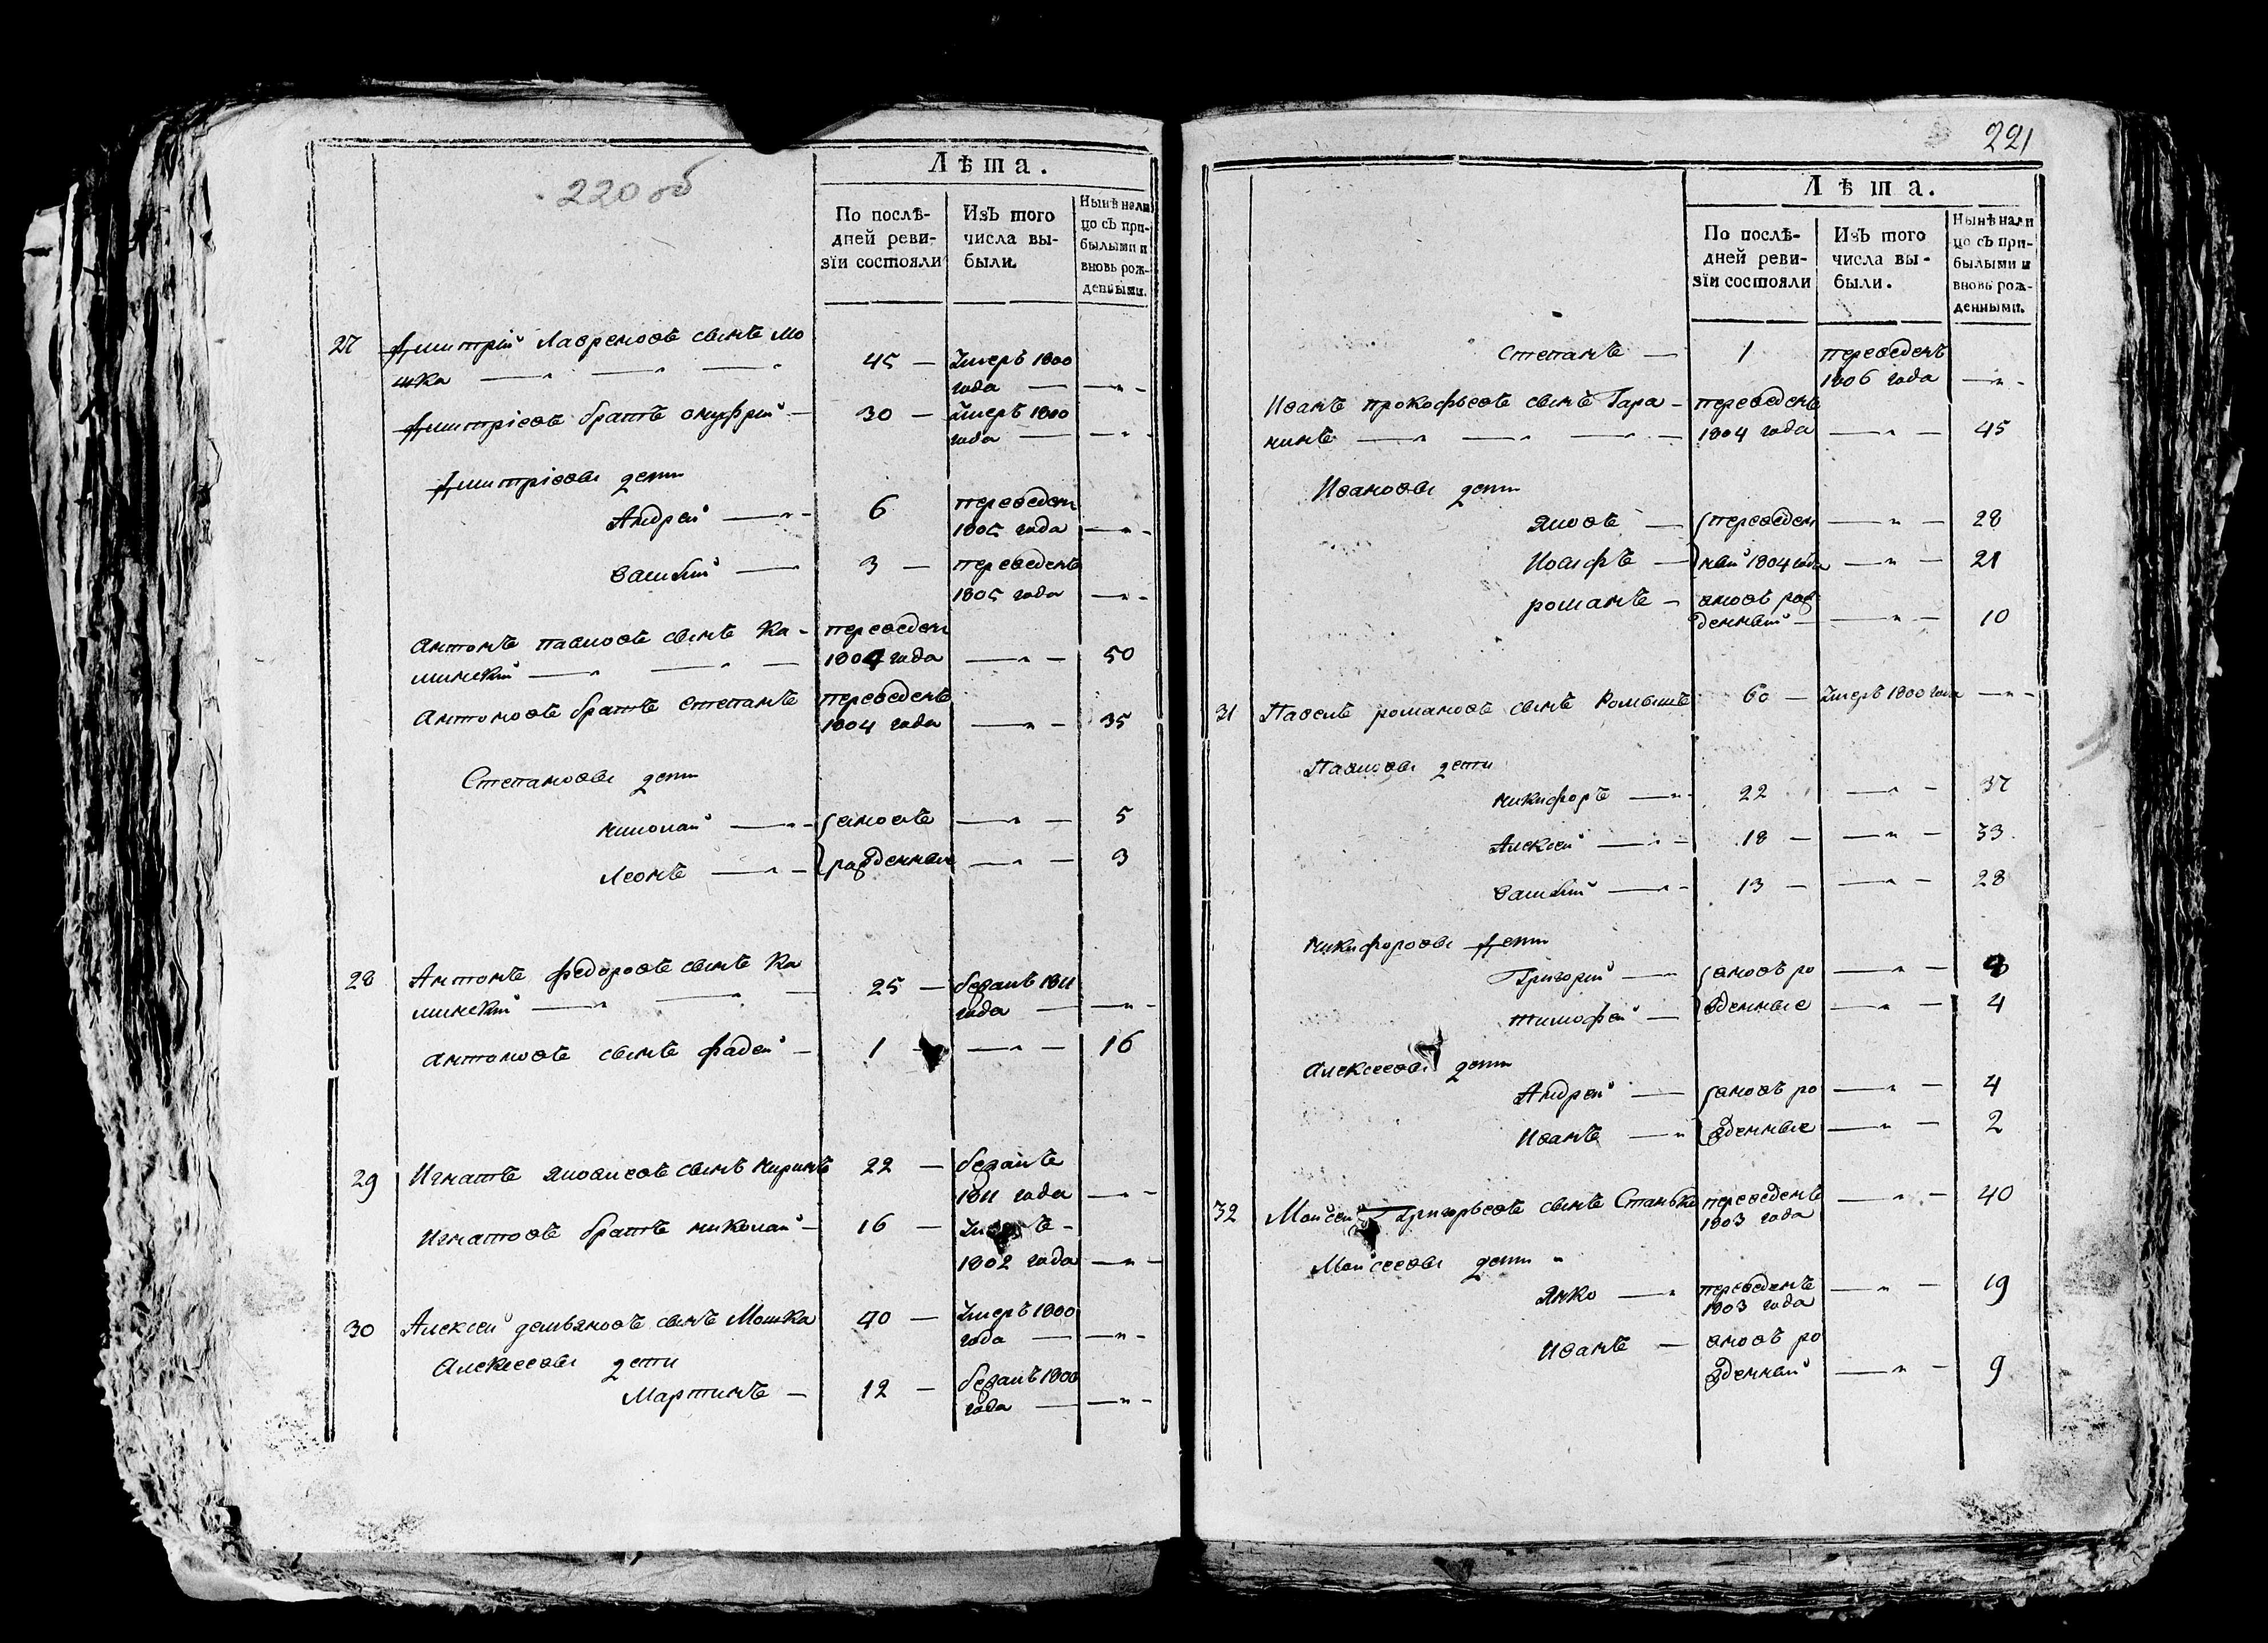 220 об
Лѣта.
По послѣдней ревизіи состояли
Изъ того числа выбыли.
Нынѣ налицо съ прибылыми и вновь рожденными.
27 Дмитрій Лавреновъ сынъ Мо 45 — Умеръ 1800
шка года — —„—
Дмитріевъ братъ онуфрій — 30 — Умеръ 1810
года — —„—
Дмитріевы дети
Андрей —„— 6 переведен
1805 года —„—
Василий — 3 — переведенъ
1805 года —„—
Антонъ павловъ сынъ Ка- переведен
минский — 1804 года —„— 50
Антоновъ братъ степанъ переведенъ
1804 года —„— 35
Степановы дети
николай —„— вновь —„— 5
Леонъ —„— ражденные —„— 3
28 Антонъ федоровъ сынъ Ка 25 — бежалъ 1811
минский — года — —„—
антоновъ сынъ фадей — 1 —„— 16
29 Игнатъ сынъ 22 — бежалъ
1811 года —„—
Игнатовъ братъ николай — 16 —
1802 года —„—
30 Алексей демьяновъ сынъ Мошка 40 — Умеръ 1800
года — —„—
Алексеевы дети
Мартинъ — 12 — бежалъ 1800
года — —„—
221
Лѣта.
По послѣдней ревизіи состояли
Изъ того числа выбыли.
Нынѣ налицо съ прибылыми и вновь рожденными.
Степанъ — 1 переведенъ
1806 года —„—
Иванъ прокофьевъ сынъ Гара- переведенъ
нинъ — 1804 года —„— 45
Ивановы дети
— переведен —„— 28
Иосифъ — ный 1804 года —„— 21
романъ — вновь раж
денный —„— 10
31 Павелъ романовъ сынъ Ромышъ 60 — Умеръ 1800 года —„—
Павловы дети
никифоръ —„— 22 —„— 37
Алексей —„— 18 — —„— 33
Василий —„— 13 — —„— 28
никифоровы дети
Григорий — вновь ро —„— 8
тимофей — жденные —„— 4
алексеевы дети
Андрей — вновь ро —„— 4
Иванъ —„ жденные —„— 2
32 Моисей Григорьевъ сынъ Станька переведенъ —„— 40
1803 года
Моисеевы дети „
Янко —„ переведенъ —„— 19
1803 года
Иванъ — вновь ро
жденный —„— 9